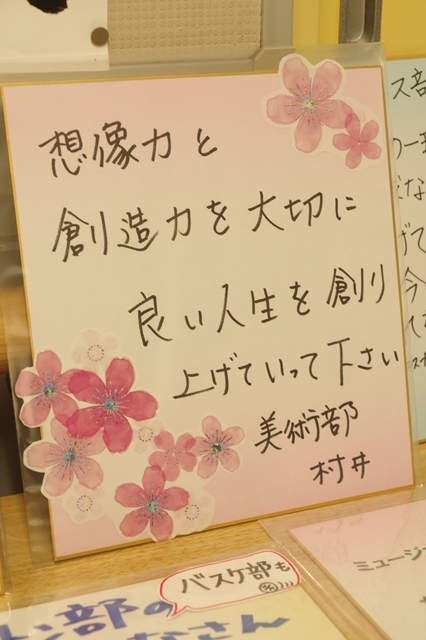 想像力と
創造力を大切に
良い人生を創り
上げていって下さい
美術部
村井
ス部
バスケ部も
ン部の
ミュージ